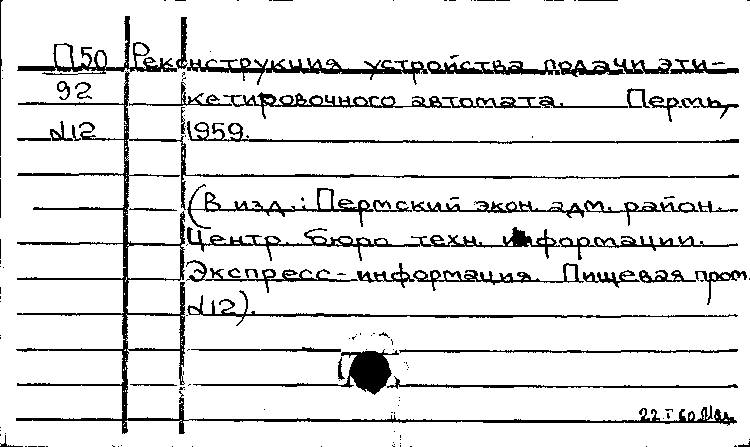 П50 Реконструкция устройства подачи эти-
92 кетировочного автомата. Пермь,
№12 1959.
(В изд.: Пермский экон. адм. район.
Центр. бюро техн. информации.
Экспресс-информация. Пищевая пром.
№12).
22 I 60